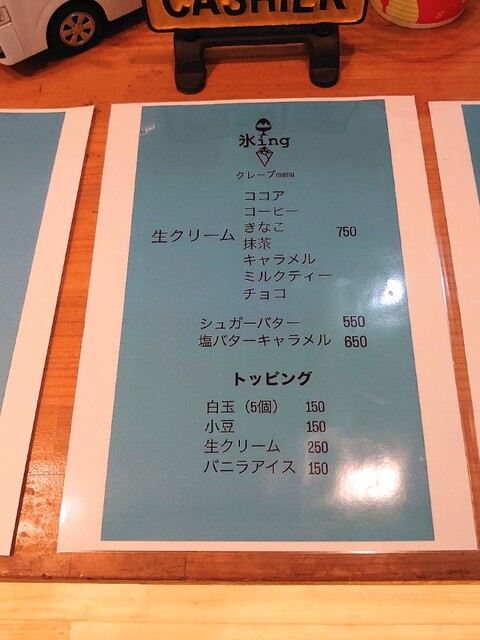 CASHIER
氷ing
クレープmenu
ココア
コーヒー
きなこ
生クリーム 750
抹茶
キャラメル
ミルクティー
チョコ
シュガーバター 550
塩バターキャラメル 650
トッピング
白玉（5個） 150
小豆 150
生クリーム 250
バニラアイス 150